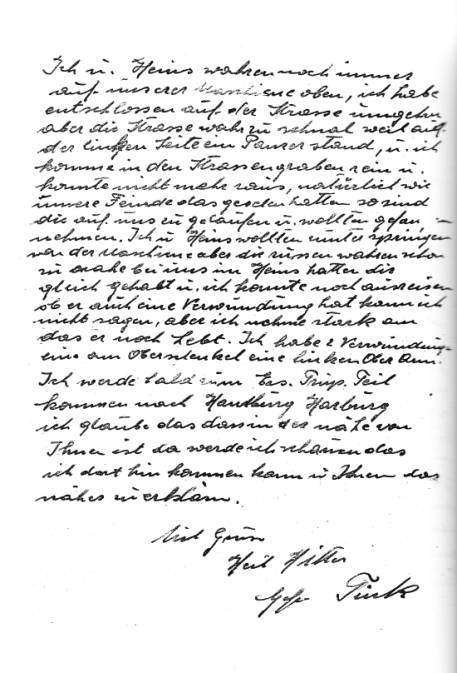 Ich u. Heins wahren noch immer
auf unserer Maschiene oben, ich habe
entschlossen auf der Strasse umgehn
aber die Strasse wahr zu schmal weil auf
der linken Seite ein Panzer stand, u. ich
komme in den Strassengraben rein u.
konnte nicht mehr raus, natürlich wie
unsere Feinde das gesehen hatten so sind
die auf uns zu gelaufen u. wollten gefan-
nehmen. Ich u Heins wollten unter springen
von der Maschine aber die russen wahren schon
zu nahe bei uns im Heins hatten die
gleich gehabt u. ich konnte noch ausreisen
ob er auch eine Verwundung hat kann ich
nicht sagen, aber ich nehme stark an
das er noch lebt. Ich habe 2 Verwundung-
eine am Oberschenkel eine linken Ober Arm.
Ich werde bald zum Ers. Trup. Teil
kommen nach Hamburg Harburg
ich glaube das dass in der nähe von
Ihnen ist da werde ich schauen das
ich dort hin kommen kann u Ihnen das
nähes zu erklären.
Viel Grüse
Heil Hitler
Gefr